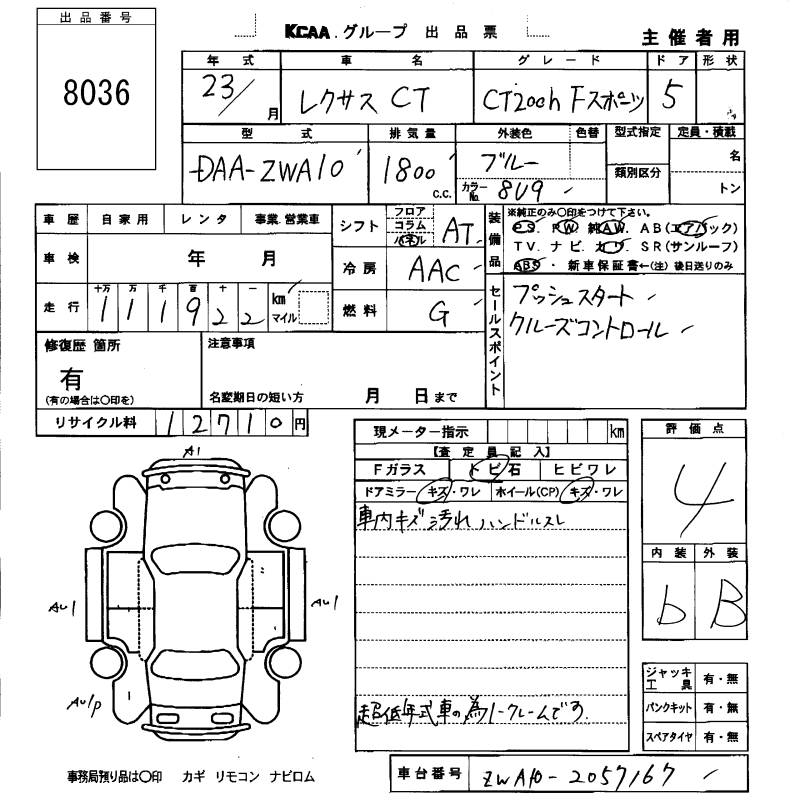 出品番号
8036
KCAA.グループ 出品票
主催者用
年式 車名 グレード ドア 形状
23/ 月 レクサス CT CT200h Fスポーツ 5
型式 排気量 外装色 色替 型式指定 定員・積載
DAA-ZWA10 1800 c.c. ブルー 名
カラーNo. 8U9 類別区分 トン
車歴 自家用 レンタ 事業.営業車
車検 年 月
走行 十万 万 千 百 十 一
1 1 1 9 2 2 km マイル
シフト フロア コラム パネル AT
冷房 AAC
燃料 G
装備品 ※純正のみ〇印をつけて下さい。
P.S. P.W 純A.W. AB(エアバック)
T.V. ナビ. カワ. SR(サンルーフ)
ABS・新車保証書←(注) 後日送りのみ
セールスポイント
プッシュスタート
クルーズコントロール
修復歴 箇所
有
(有の場合は〇印を)
注意事項
名変期日の短い方 月 日まで
リサイクル料 12710円
現メーター指示 km
【査定員記入】
Fガラス トビ石 ヒビワレ
ドアミラー キズ・ワレ ホイール(CP) キズ・ワレ
車内キズ 汚れ ハンドルスレ
超低年式車の為ノークレームです.
評価点
4
内装 外装
b B
ジャッキ工具 有・無
パンクキット 有・無
スペアタイヤ 有・無
A1
AU1
AU1
AU1P
事務局預り品は〇印 カギ リモコン ナビロム
車台番号 ZWA10-2057167